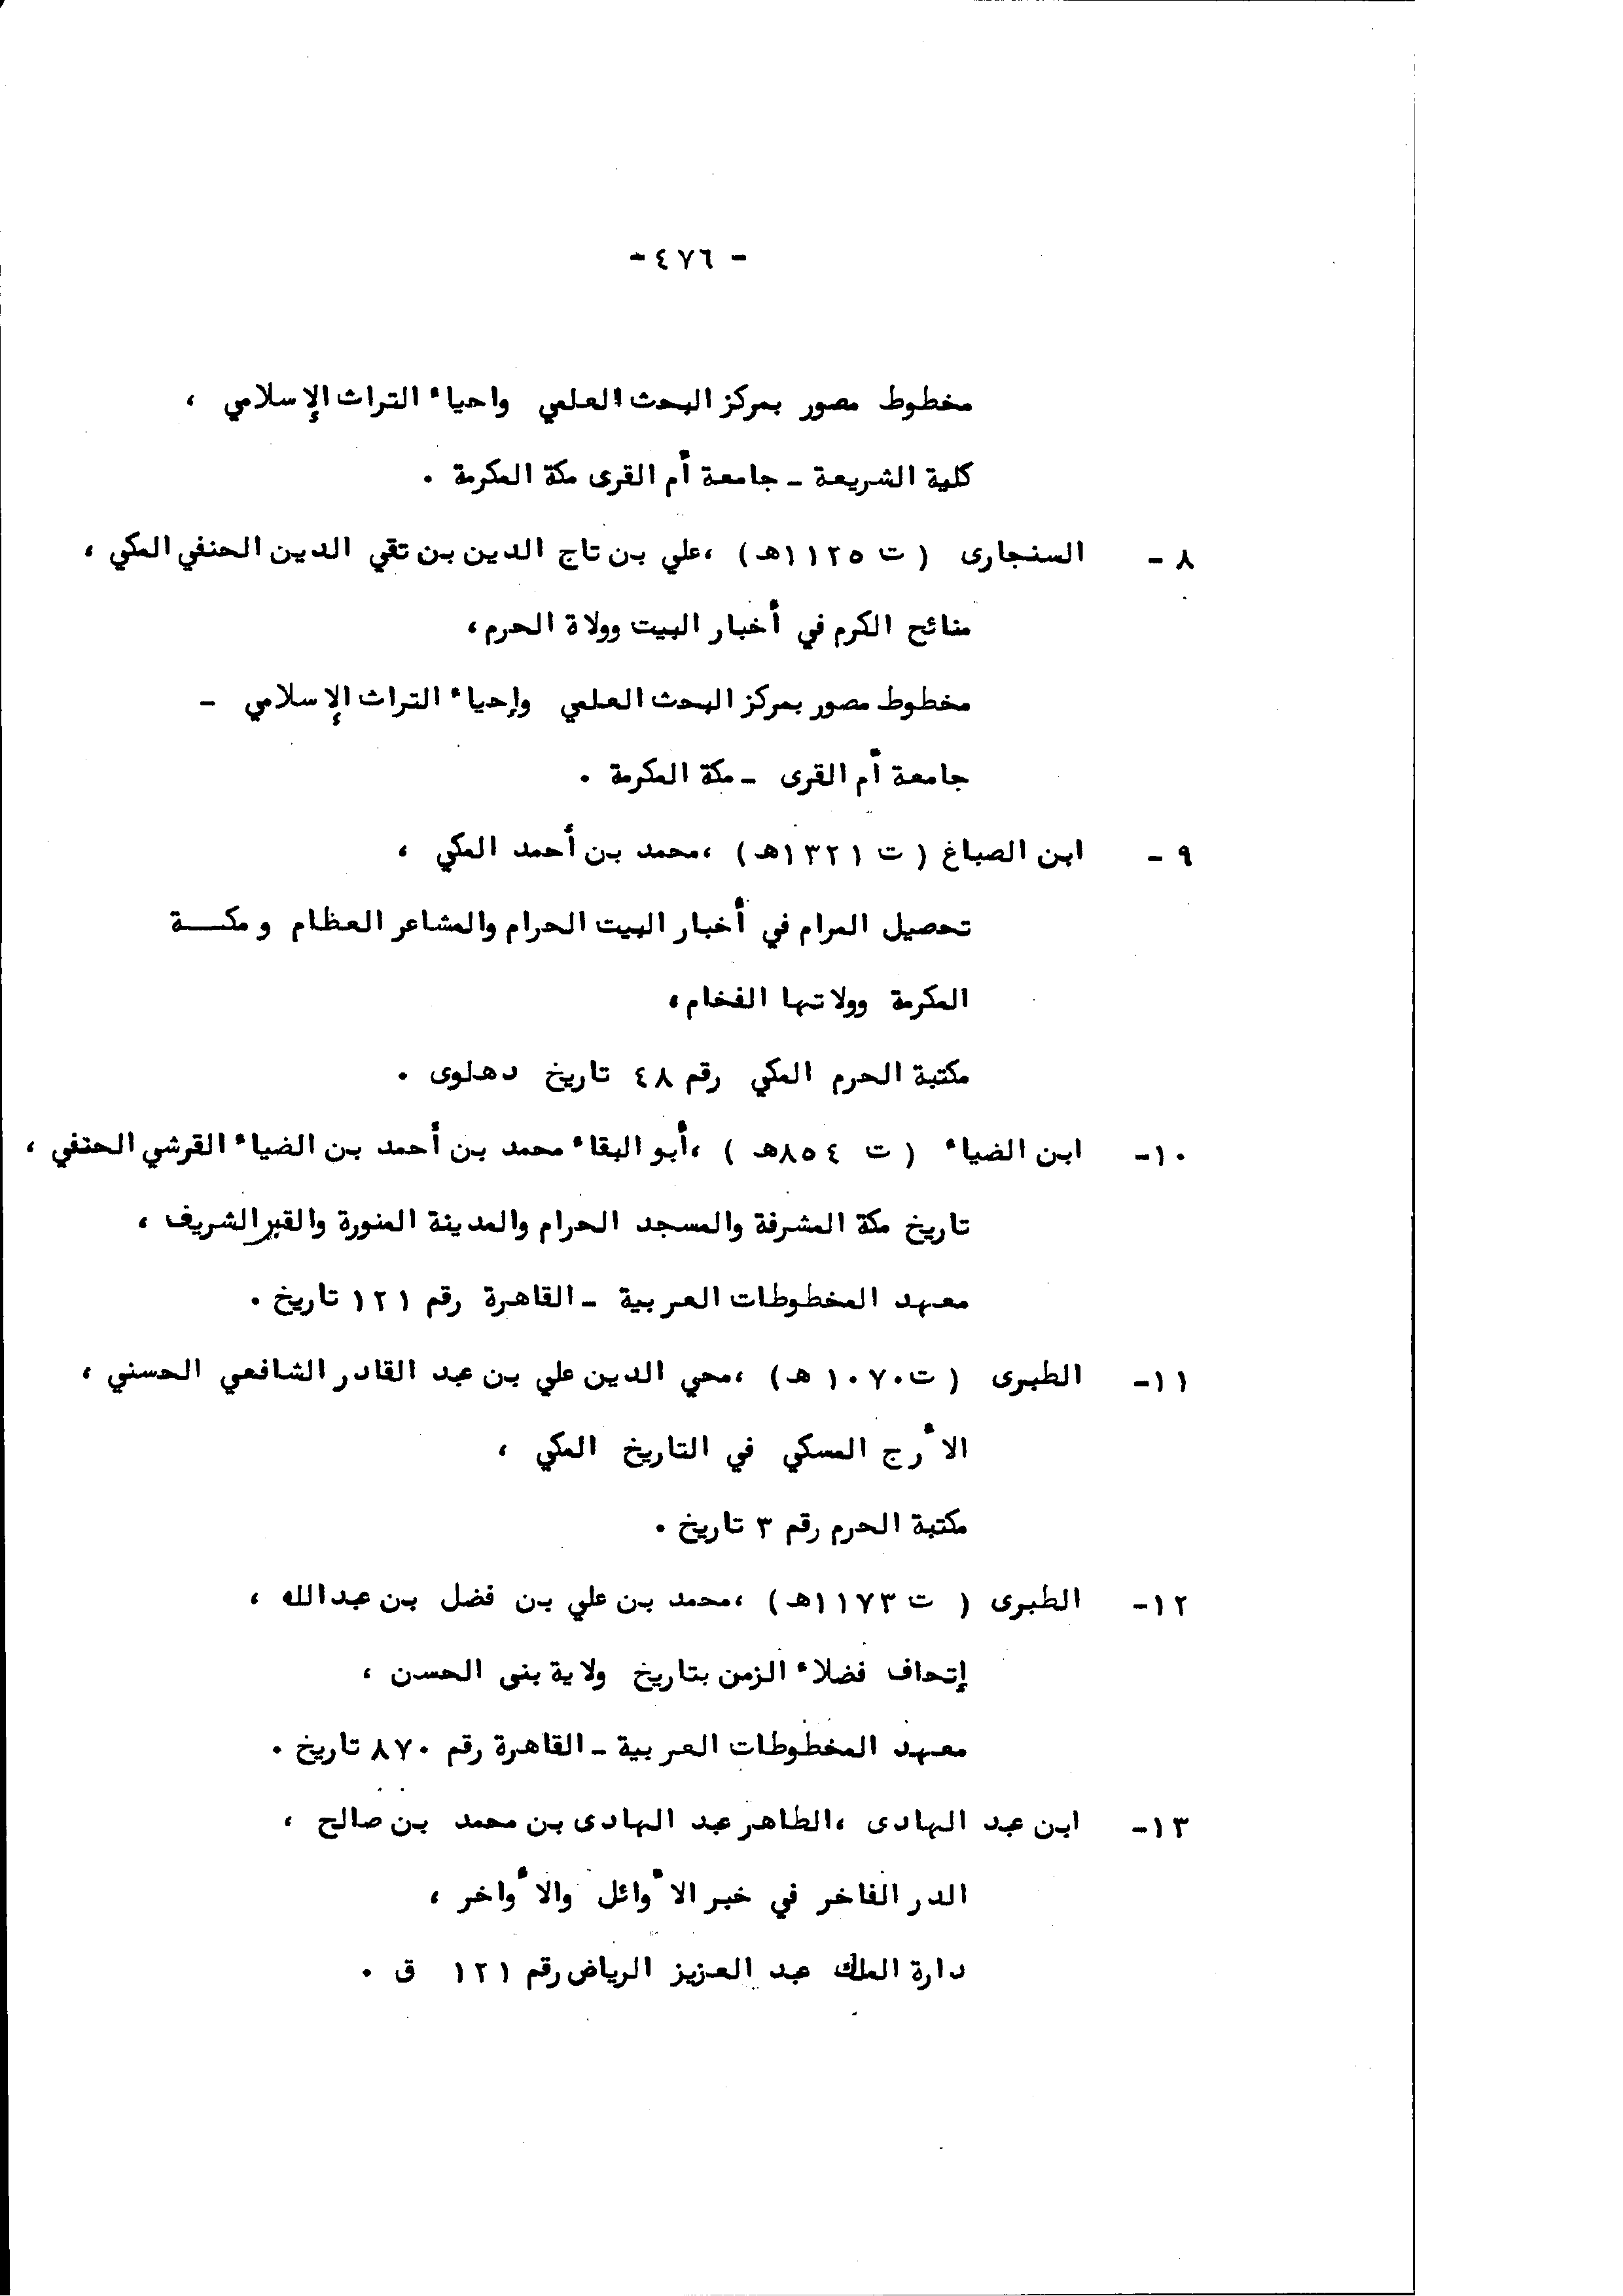 - ٤٧٦ -
مخطوط مصور بمركز البحث العلمي واحياء التراث الإسلامي ،
كلية الشريعة - جامعة أم القرى مكة المكرمة .
٨ - السنجارى ( ت ١١٢٥هـ ) ،علي بن تاج الدين بن تقي الدين الحنفي المكي ،
منائح الكرم في أخبار البيت وولاة الحرم،
مخطوط مصور بمركز البحث العلمي وإحياء التراث الإسلامي -
جامعة أم القرى - مكة المكرمة .
٩ - ابن الصباغ ( ت ١٣٢١هـ ) ،محمد بن أحمد المكي ،
تحصيل المرام في أخبار البيت الحرام والمشاعر العظام ومكـــة
المكرمة وولاتها الفخام،
مكتبة الحرم المكي رقم ٤٨ تاريخ دهلوى .
١٠- ابن الضياء ( ت ٨٥٤هـ ) ،أبو البقاء محمد بن أحمد بن الضياء القرشي الحنفي ،
تاريخ مكة المشرفة والمسجد الحرام والمدينة المنورة والقبر الشريف ،
معهد المخطوطات العربية - القاهرة رقم ١٢١ تاريخ .
١١- الطبرى ( ت١٠٧٠ هـ ) ،محي الدين علي بن عبد القادر الشافعي الحسني ،
الأرج المسكي في التاريخ المكي ،
مكتبة الحرم رقم ٣ تاريخ .
١٢- الطبرى ( ت ١١٧٣هـ ) ،محمد بن علي بن فضل بن عبدالله ،
إتحاف فضلاء الزمن بتاريخ ولاية بنى الحسن ،
معهد المخطوطات العربية - القاهرة رقم ٨٧٠ تاريخ .
١٣- ابن عبد الهادى ،الطاهر عبد الهادى بن محمد بن صالح ،
الدر الفاخر في خبر الأوائل والأواخر ،
دارة الملك عبد العزيز الرياض رقم ١٢١ ق .